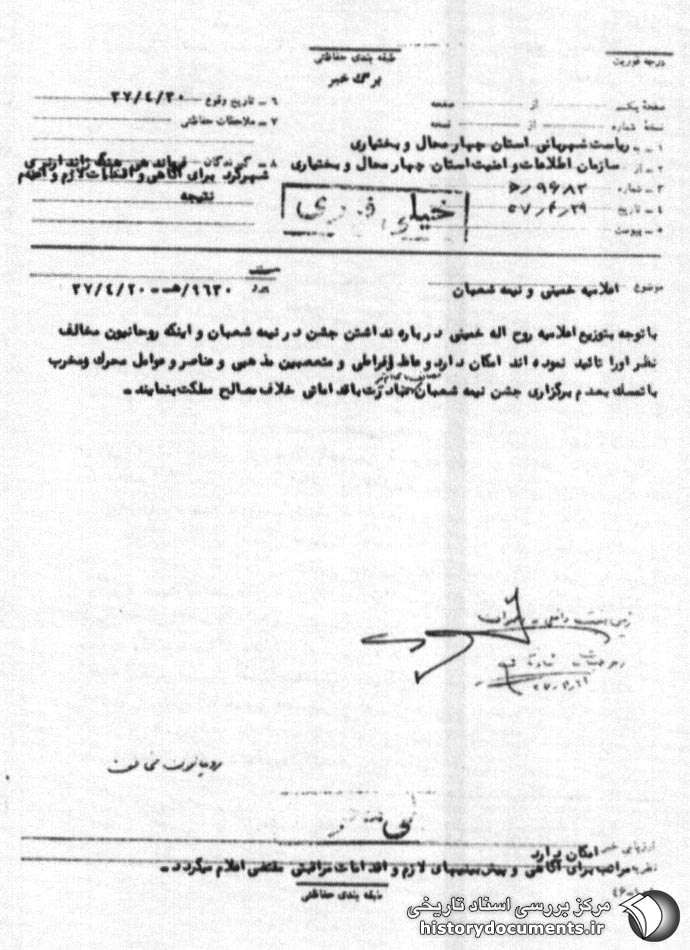 طبقه بندی حفاظتی
درجه فوریت
برگ خبر
صفحه یکم از صفحه
نسخه شماره از نسخه
۱ - به ریاست شهربانی استان چهارمحال و بختیاری
۲ - از سازمان اطلاعات و امنیت استان چهارمحال و بختیاری
۳ - شماره ۵/۹۶۸۲
۴ - تاریخ ۵۷/۴/۲۹
۵ - پیوست
۶ - تاریخ وقوع ۳۷/۴/۲۰
۷ - ملاحظات حفاظتی
۸ - گیرندگان فرماندهی هنگ ژاندارمری
شهرکرد برای آگاهی و اقدامات لازم و اعلام
نتیجه
خیلی فوری
موضوع اعلامیه خمینی و نیمه شعبان
۹۶۳۰/هـ - ۳۷/۴/۲۰
باتوجه بتوزیع اعلامیه روح اله خمینی درباره نداشتن جشن در نیمه شعبان و اینکه روحانیون مخالف
نظر اورا تائید نموده اند امکان دارد وعاظ افراطی و متعصبین مذهبی و عناصر و عوامل محرک ومخرب
باتمسک بعدم برگزاری جشن نیمه شعبان مبادرت باقداماتی خلاف مصالح مملکت بنمایند -
روحانیون مخالف
ارزیابی خبر امکان دارد
نظریه مراتب برای آگاهی و پیش بینیهای لازم و اقدامات مراقبتی مقتضی اعلام میگردد -
طبقه بندی حفاظتی
مرکز بررسی اسناد تاریخی
historydocuments.ir